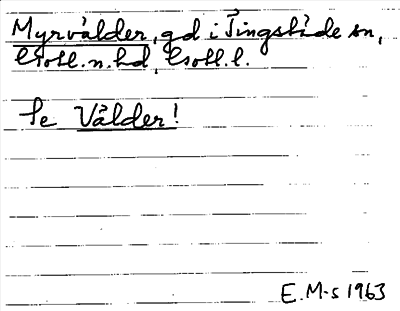 Myrvälder, gd i Tingstäde sn,
Gotl. n. hd, Gotl. l.
Se Välder!
E. M-s 1963